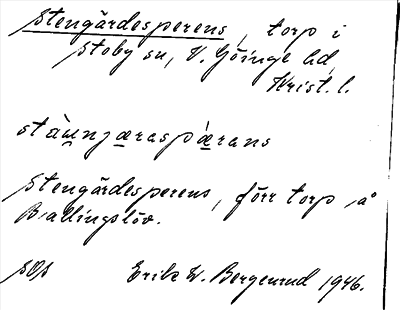 Stengärdesperens, torp i
Stoby sn, V. Göinge hd,
Krist. l.
stàu̯njæraspæ̀rans
Stengärdesperens, förr torp på
Ballingslöv.
sOp Erik W. Bergenrud 1946.